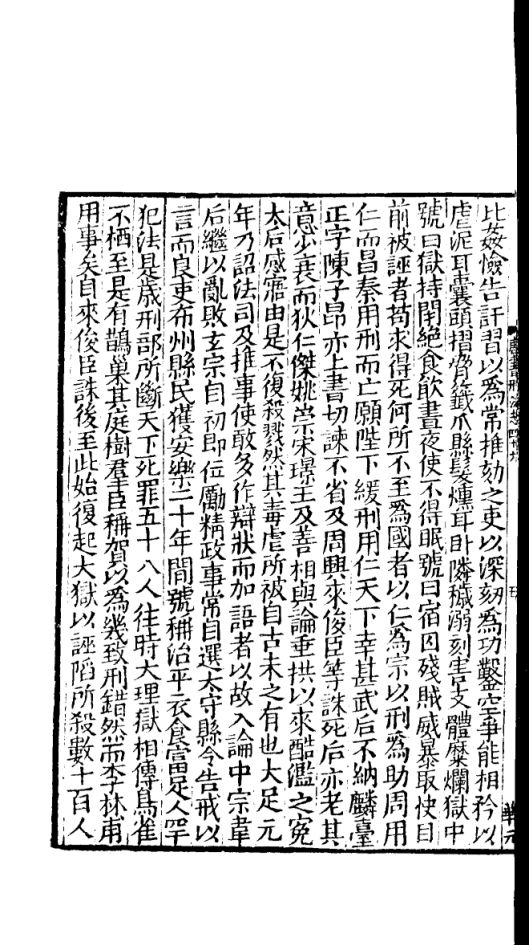 比姦憸告訐習以爲常推劾之吏以深刻爲功鑿空爭能相矜以
虐泥耳囊頭摺脅籤爪縣髮燻耳臥隣穢溺刻害支體糜爛獄中
號曰獄持閉絕食飲晝夜使不得眠號曰宿囚殘賊威暴取快目
前被誣者苟求得死何所不至爲國者以仁爲宗以刑爲助周用
仁而昌秦用刑而亡願陛下緩刑用仁天下幸甚武后不納麟臺
正字陳子昂亦上書切諫不省及周興來俊臣等誅死后亦老其
意少衰而狄仁傑姚崇宋璟王及善相與論垂拱以來酷濫之寃
太后感寤由是不復殺戮然其毒虐所被自古未之有也大足元
年乃詔法司及推事使敢多作辯狀而加語者以故入論中宗韋
后繼以亂敗玄宗自初即位勵精政事常自選太守縣令告戒以
言而良吏布州縣民獲安樂二十年間號稱治平衣食富足人罕
犯法是歲刑部所斷天下死罪五十八人往時大理獄相傳鳥雀
不栖至是有鵲巢其庭樹羣臣稱賀以爲幾致刑錯然而李林甫
用事矣自來俊臣誅後至此始復起大獄以誣陷所殺數十百人